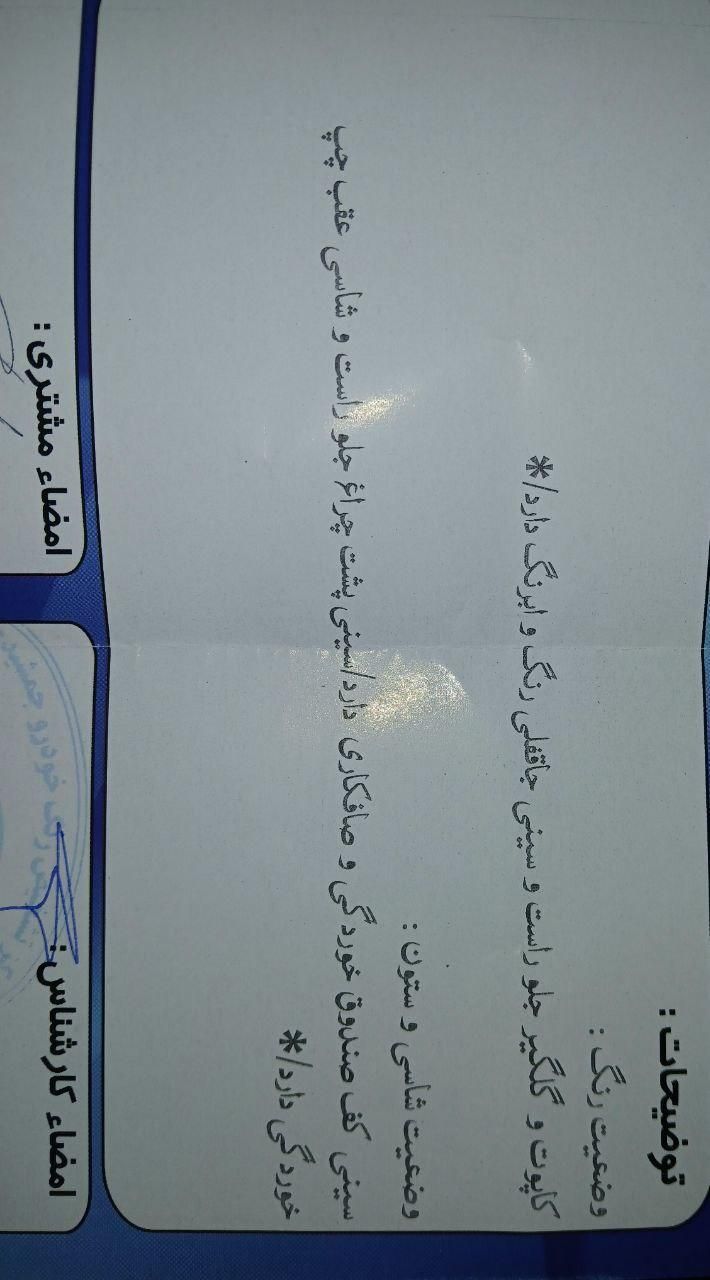 توضیحات :
وضعیت رنگ :
کاپوت و گلگیر جلو راست و سینی جاقفلی رنگ و ابرنگ دارد/*
وضعیت شاسی و ستون :
سینی کف صندوق خوردگی و صافکاری دارد/سینی پشت چراغ جلو راست و شاسی عقب چپ
خوردگی دارد/*
امضاء کارشناس :
امضاء مشتری :
رنگ خودرو